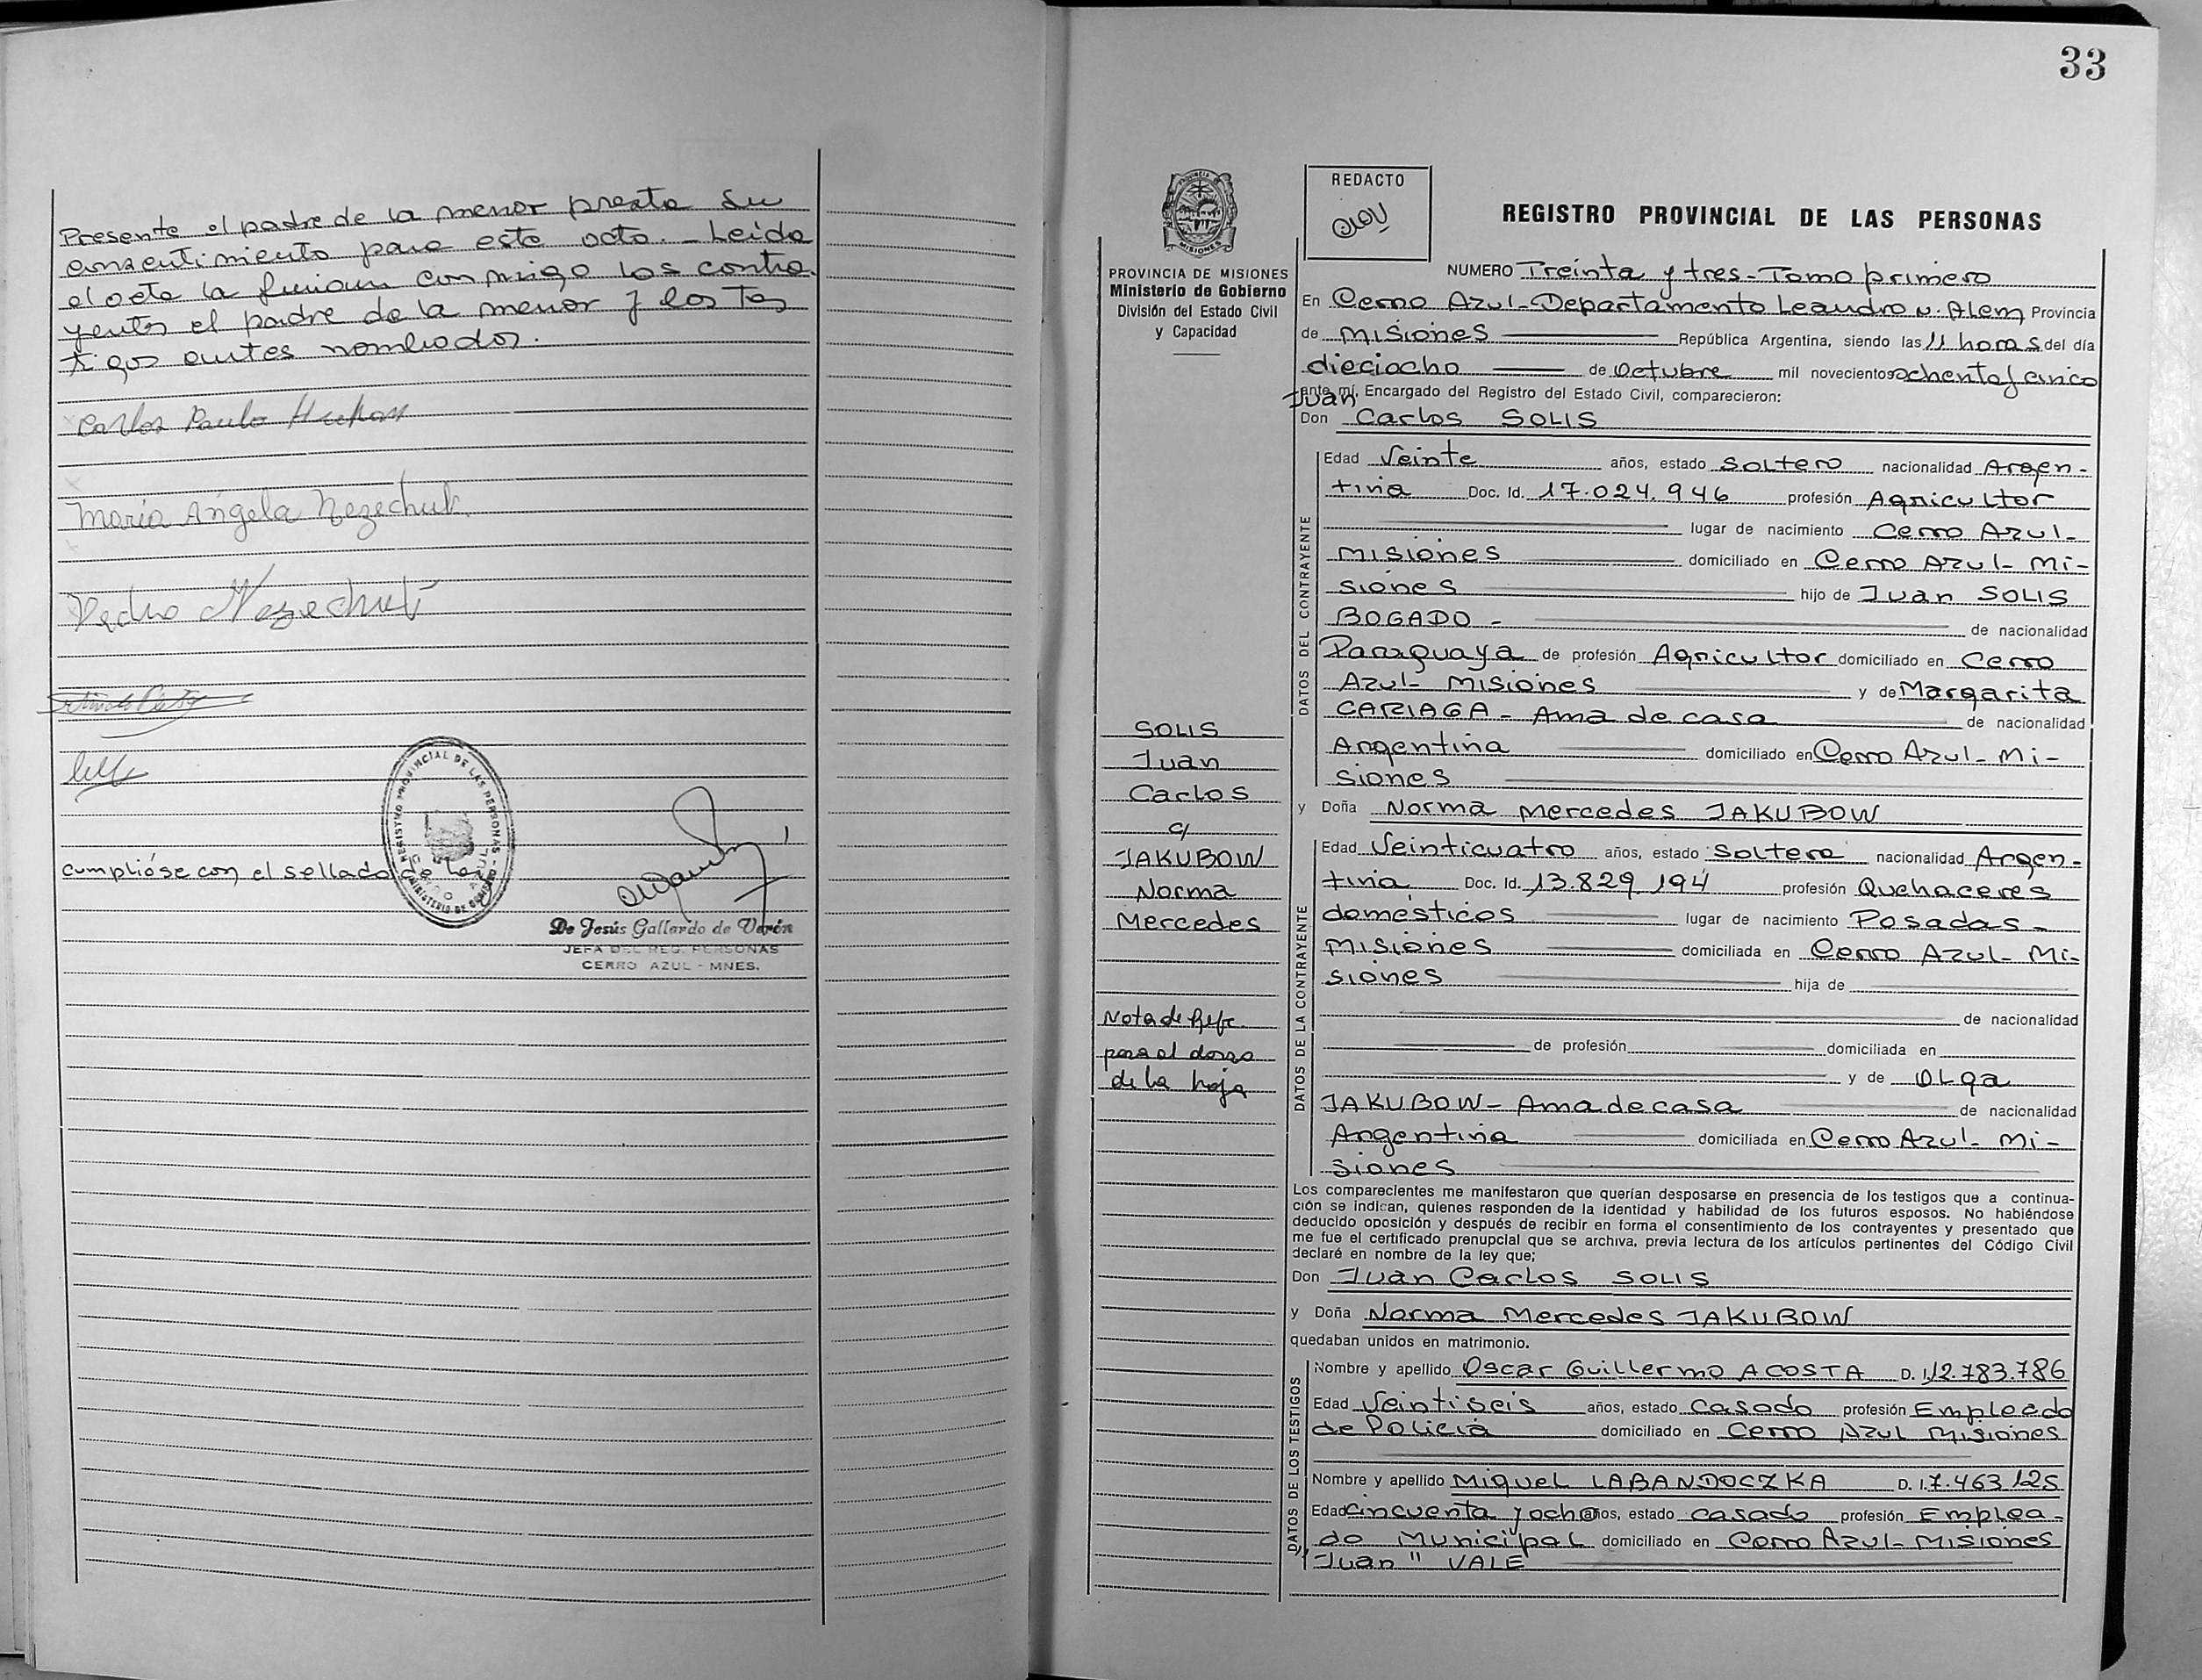 Presente el padre de la menor presta su
consentimiento para este acto. - Leida
el acta la firman conmigo los contra-
yentes el padre de la menor y los Tes
tigos antes nombrados.
Carlos Paulo
Maria Angela Nezechuk
Pedro Nezechuk
cumplióse con el sellado de Ley
REGISTRO PROVINCIAL DE LAS PERSONAS
MINISTERIO DE GOBIERNO
CERRO AZUL
De Jesús Gallardo de Verón
JEFA DEL REG. PERSONAS
CERRO AZUL - MNES.
33
PROVINCIA DE MISIONES
Ministerio de Gobierno
División del Estado Civil
y Capacidad
SOLIS
Juan
Carlos
c/
JAKUBOW
Norma
Mercedes
Nota de Refe.
pasa al dorso
de la hoja
REDACTO
REGISTRO PROVINCIAL DE LAS PERSONAS
NUMERO Treinta y tres - Tomo primero
En Cerro Azul - Departamento Leandro N. Alem Provincia
de Misiones República Argentina, siendo las 11 horas del día
dieciocho de Octubre mil novecientos ochenta y cinco
ante mí, Encargado del Registro del Estado Civil, comparecieron:
Juan
Don Carlos SOLIS
DATOS DEL CONTRAYENTE
Edad Veinte años, estado Soltero nacionalidad Argen-
tina Doc. Id. 17.024.946 profesión Agricultor
lugar de nacimiento Cerro Azul-
Misiones domiciliado en Cerro Azul - Mi-
siones hijo de Juan SOLIS
BOGADO - de nacionalidad
Paraguaya de profesión Agricultor domiciliado en Cerro
Azul - Misiones y de Margarita
CARIAGA - Ama de casa de nacionalidad
Argentina domiciliado en Cerro Azul - Mi-
siones
y Doña Norma Mercedes JAKUBOW
DATOS DE LA CONTRAYENTE
Edad Veinticuatro años, estado Soltera nacionalidad Argen-
tina Doc. Id. 13.829.194 profesión Quehaceres
domésticos lugar de nacimiento Posadas -
Misiones domiciliada en Cerro Azul - Mi-
siones hija de
de nacionalidad
de profesión domiciliada en
y de Olga
JAKUBOW - Ama de casa de nacionalidad
Argentina domiciliada en Cerro Azul - Mi-
siones
Los comparecientes me manifestaron que querían desposarse en presencia de los testigos que a continua-
ción se indican, quienes responden de la identidad y habilidad de los futuros esposos. No habiéndose
deducido oposición y después de recibir en forma el consentimiento de los contrayentes y presentado que
me fue el certificado prenupcial que se archiva, previa lectura de los artículos pertinentes del Código Civil
declaré en nombre de la ley que;
Don Juan Carlos SOLIS
y Doña Norma Mercedes JAKUBOW
quedaban unidos en matrimonio.
DATOS DE LOS TESTIGOS
Nombre y apellido Oscar Guillermo ACOSTA D. I. 12.783.786
Edad Veintiseis años, estado casado profesión Empleado
de Policia domiciliado en Cerro Azul Misiones
Nombre y apellido Miguel LABANDOCZKA D. I. 7.463.125
Edad cincuenta y ocho años, estado casado profesión Emplea-
do Municipal domiciliado en Cerro Azul - Misiones
"Juan" VALE